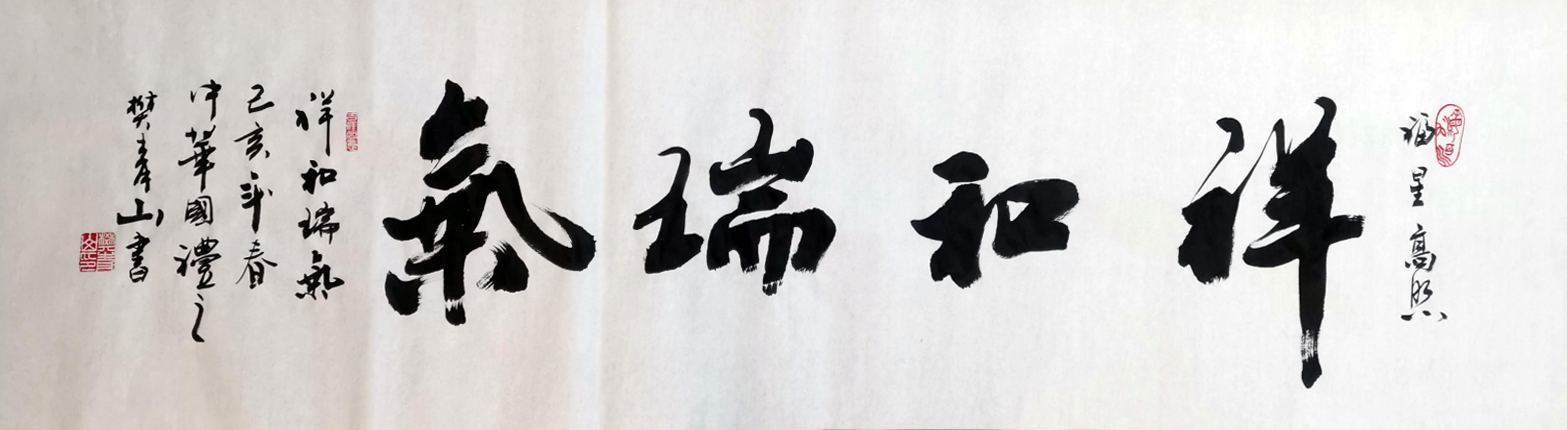 福星高照
祥和瑞氣
祥和瑞氣
己亥年春
中華國禮之
樊山書